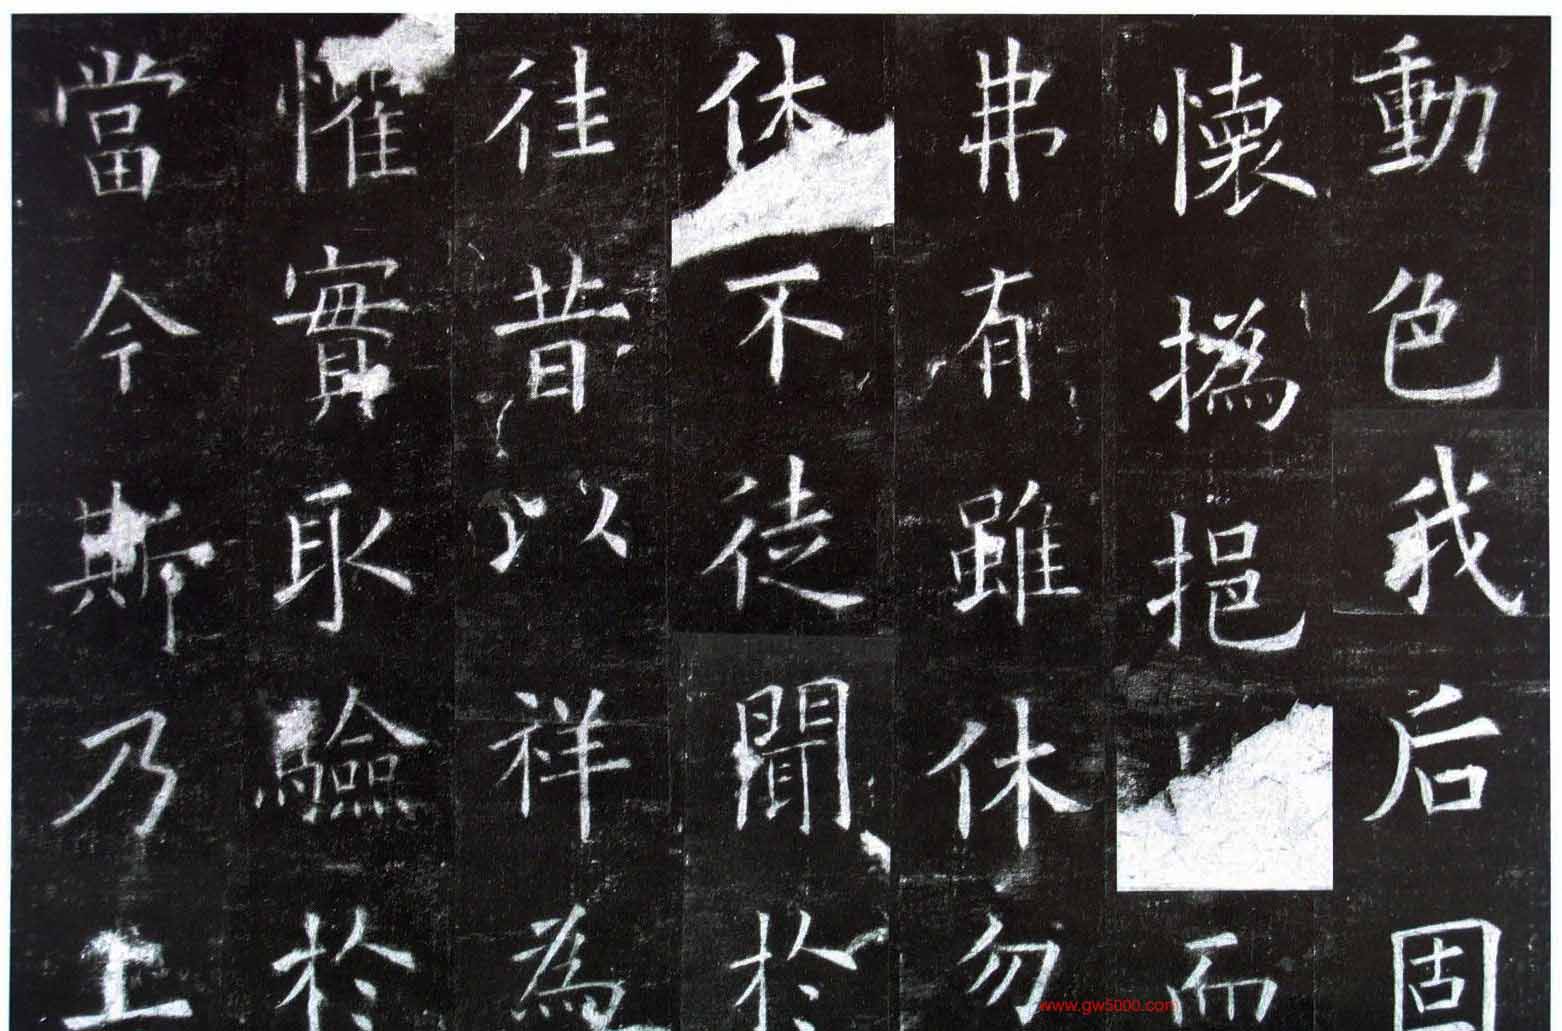 動色我后固
懷撝挹而
弗有雖休勿
休不徒聞於
往昔以祥為
懼實取驗於
當今斯乃上
www.gw5000.com